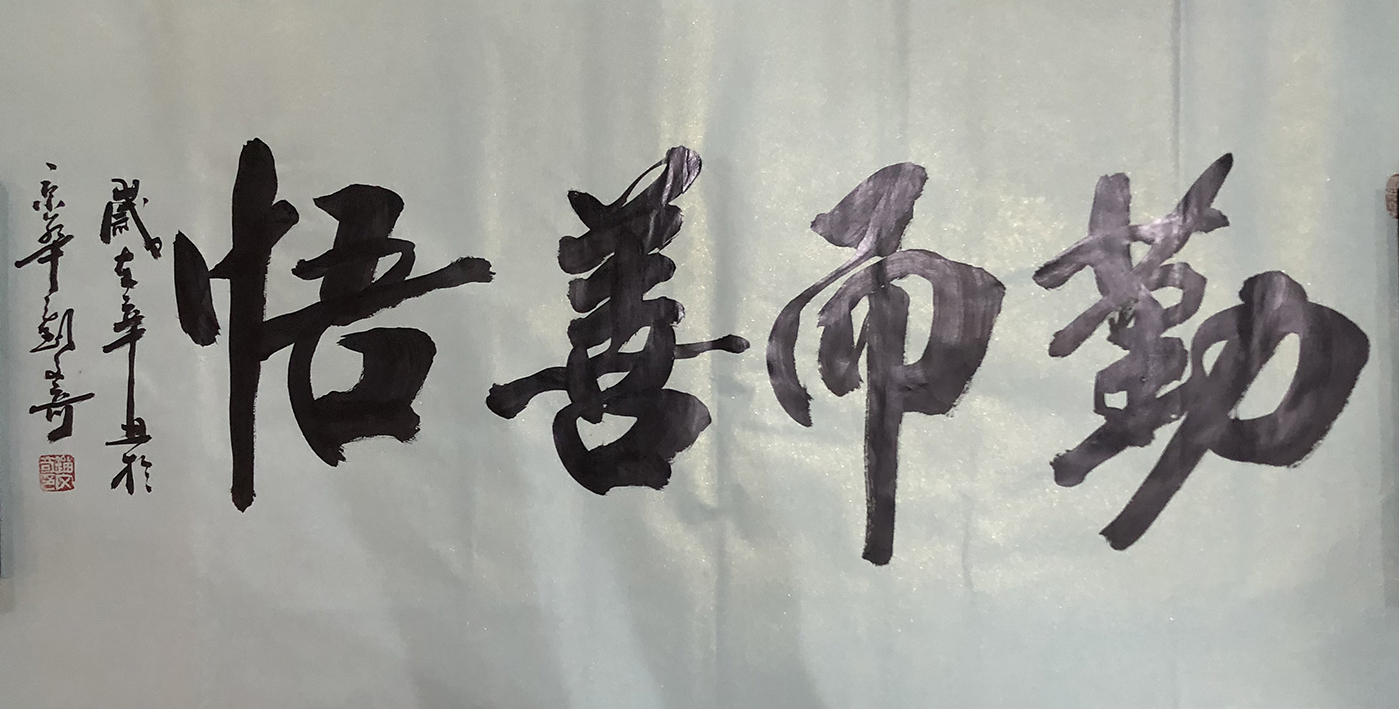 勤而善悟
歲在辛丑於
京華劉文奇